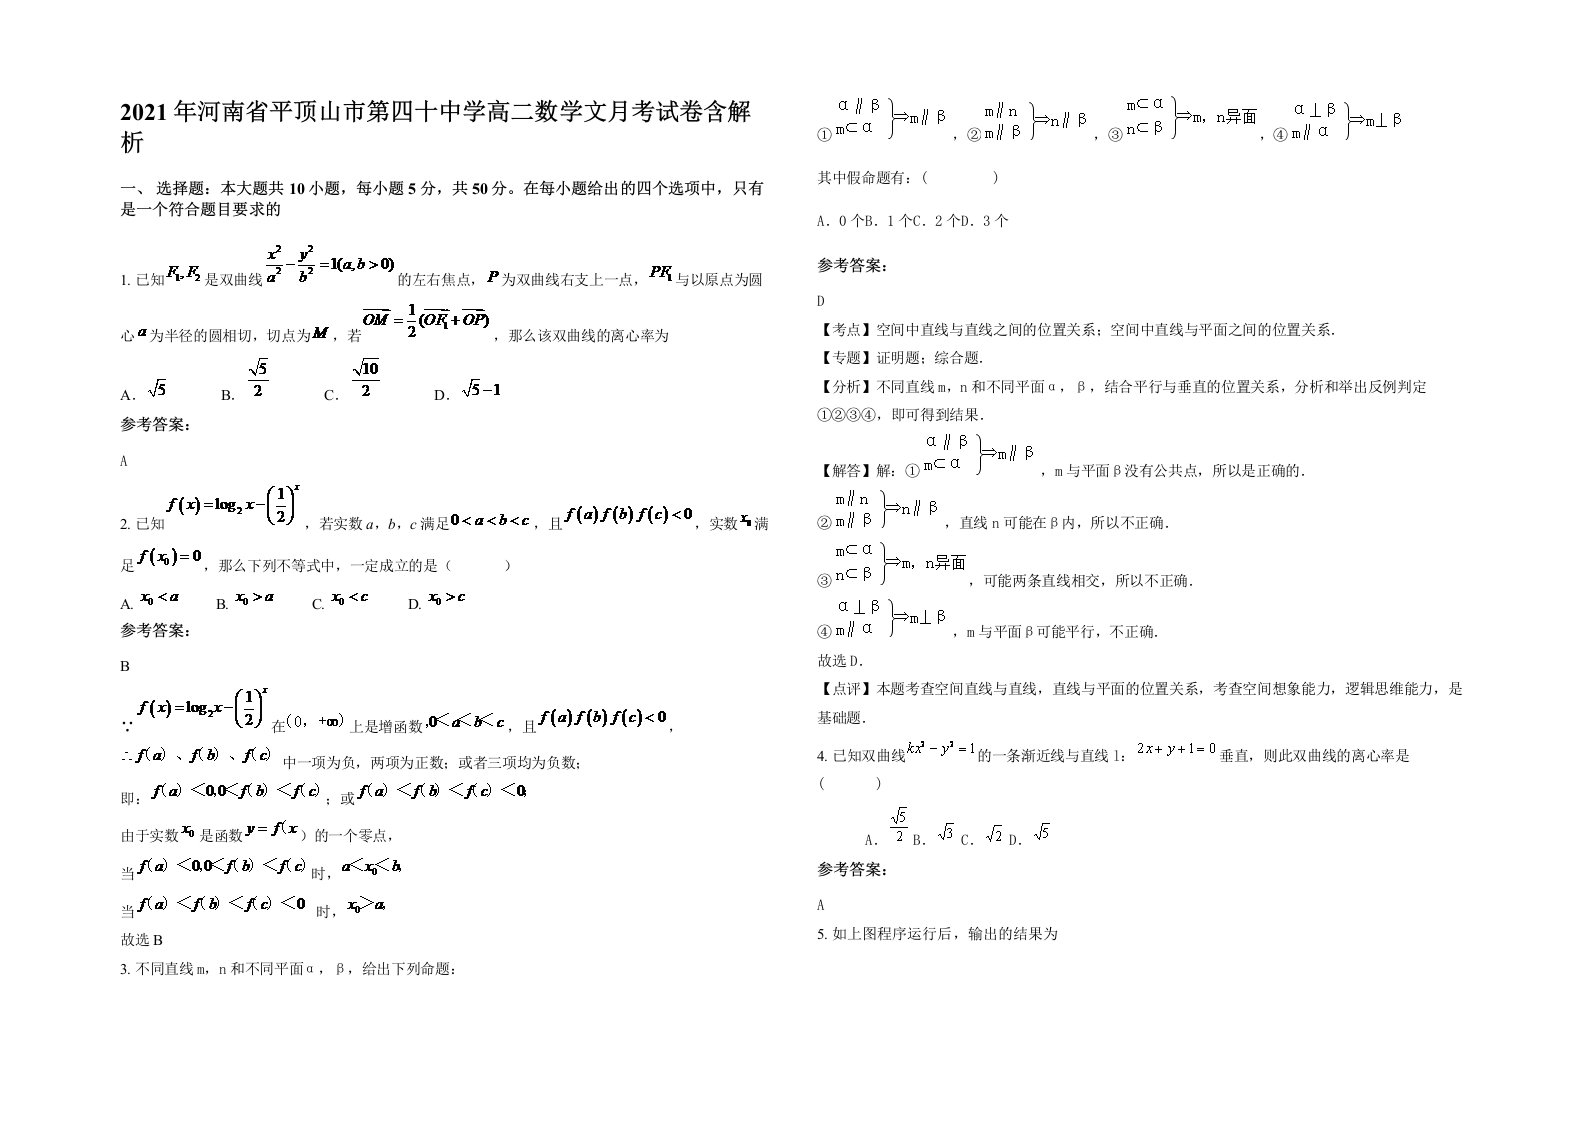 2021年河南省平顶山市第四十中学高二数学文月考试卷含解
析
一、 选择题：本大题共 10 小题，每小题 5 分，共 50 分。在每小题给出的四个选项中，只有
是一个符合题目要求的
1. 已知F₁,F₂是双曲线 x²/a² − y²/b² =1(a,b>0) 的左右焦点，P为双曲线右支上一点，PF₁与以原点为圆
心a为半径的圆相切，切点为M，若 OM→ = 1/2(OF₁→+OP→)，那么该双曲线的离心率为
A．√5 B．√5/2 C．√10/2 D．√5−1
参考答案：
A
2. 已知 f(x)=log₂x−(1/2)ˣ，若实数 a，b，c 满足0<a<b<c，且f(a)f(b)f(c)<0，实数x₀满
足f(x₀)=0，那么下列不等式中，一定成立的是（ ）
A. x₀<a B. x₀>a C. x₀<c D. x₀>c
参考答案：
B
∵ f(x)=log₂x−(1/2)ˣ 在(0，+∞) 上是增函数,0<a<b<c，且f(a)f(b)f(c)<0，
∴f(a) 、f(b) 、f(c) 中一项为负，两项为正数；或者三项均为负数；
即：f(a) <0,0<f(b) <f(c)；或f(a) <f(b) <f(c) <0;
由于实数x₀是函数y=f(x）的一个零点，
当f(a) <0,0<f(b) <f(c)时，a<x₀<b,
当f(a) <f(b) <f(c) <0 时，x₀>a,
故选 B
3. 不同直线 m，n 和不同平面α，β，给出下列命题：
① α∥β m⊂α }⇒m∥β ，② m∥n m∥β }⇒n∥β ，③ m⊂α n⊂β }⇒m，n异面 ，④ α⊥β m∥α }⇒m⊥β
其中假命题有：( )
A．0 个B．1 个C．2 个D．3 个
参考答案：
D
【考点】空间中直线与直线之间的位置关系；空间中直线与平面之间的位置关系．
【专题】证明题；综合题．
【分析】不同直线 m，n 和不同平面α，β，结合平行与垂直的位置关系，分析和举出反例判定
①②③④，即可得到结果．
【解答】解：① α∥β m⊂α }⇒m∥β ，m 与平面β没有公共点，所以是正确的．
② m∥n m∥β }⇒n∥β ，直线 n 可能在β内，所以不正确．
③ m⊂α n⊂β }⇒m，n异面 ，可能两条直线相交，所以不正确．
④ α⊥β m∥α }⇒m⊥β ，m 与平面β可能平行，不正确．
故选 D．
【点评】本题考查空间直线与直线，直线与平面的位置关系，考查空间想象能力，逻辑思维能力，是
基础题．
4. 已知双曲线kx²−y²=1的一条渐近线与直线 l：2x+y+1=0垂直，则此双曲线的离心率是
( )
A．√5/2 B．√3 C．√2 D．√5
参考答案：
A
5. 如上图程序运行后，输出的结果为